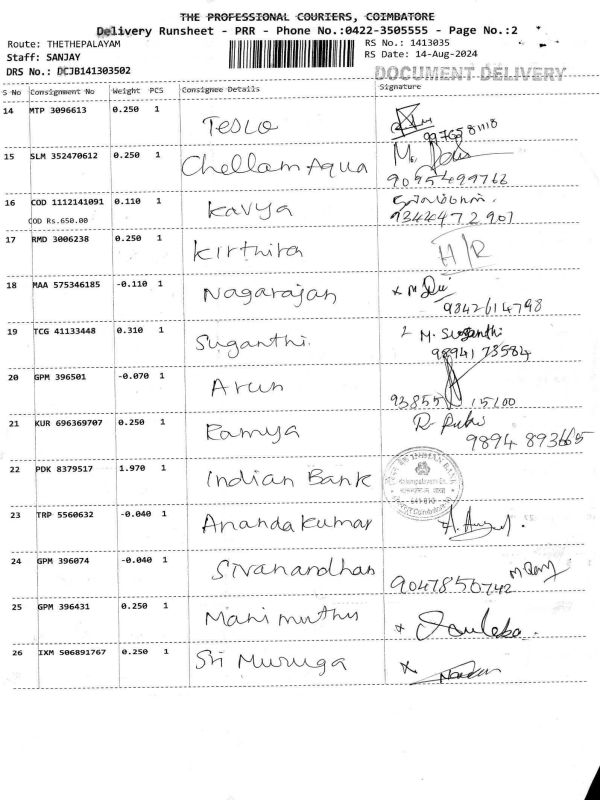 THE PROFESSIONAL COURIERS, COIMBATORE
Delivery Runsheet - PRR - Phone No.:0422-3505555 - Page No.:2
Route: THETHEPALAYAM
RS No.: 1413035
Staff: SANJAY
RS Date: 14-Aug-2024
DRS No.: DCJB141303502
DOCUMENT DELIVERY
S No Consignment No Weight PCS Consignee Details Signature
14 MTP 3096613 0.250 1 Tesco
15 SLM 352470612 0.250 1 Chellam Aqua
16 COD 1112141091 0.110 1 Kavya
COD Rs.650.00
17 RMD 3006238 0.250 1 Kirthika H/R
18 MAA 575346185 -0.110 1 Nagarajan x M
9842614798
19 TCG 41133448 0.310 1 Suganthi. M. Suganthi
9894173584
20 GPM 396501 -0.070 1 Arun
93855 15100
21 KUR 696369707 0.250 1 Ramya R.
9894 893665
22 PDK 8379517 1.970 1 Indian Bank INDIAN BANK
23 TRP 5560632 -0.040 1 Anandakumar
24 GPM 396074 -0.040 1 Sivanandhan
9047856742
25 GPM 396431 0.250 1 Mahimuthu x
26 IXM 506891767 0.250 1 Sri Muruga x